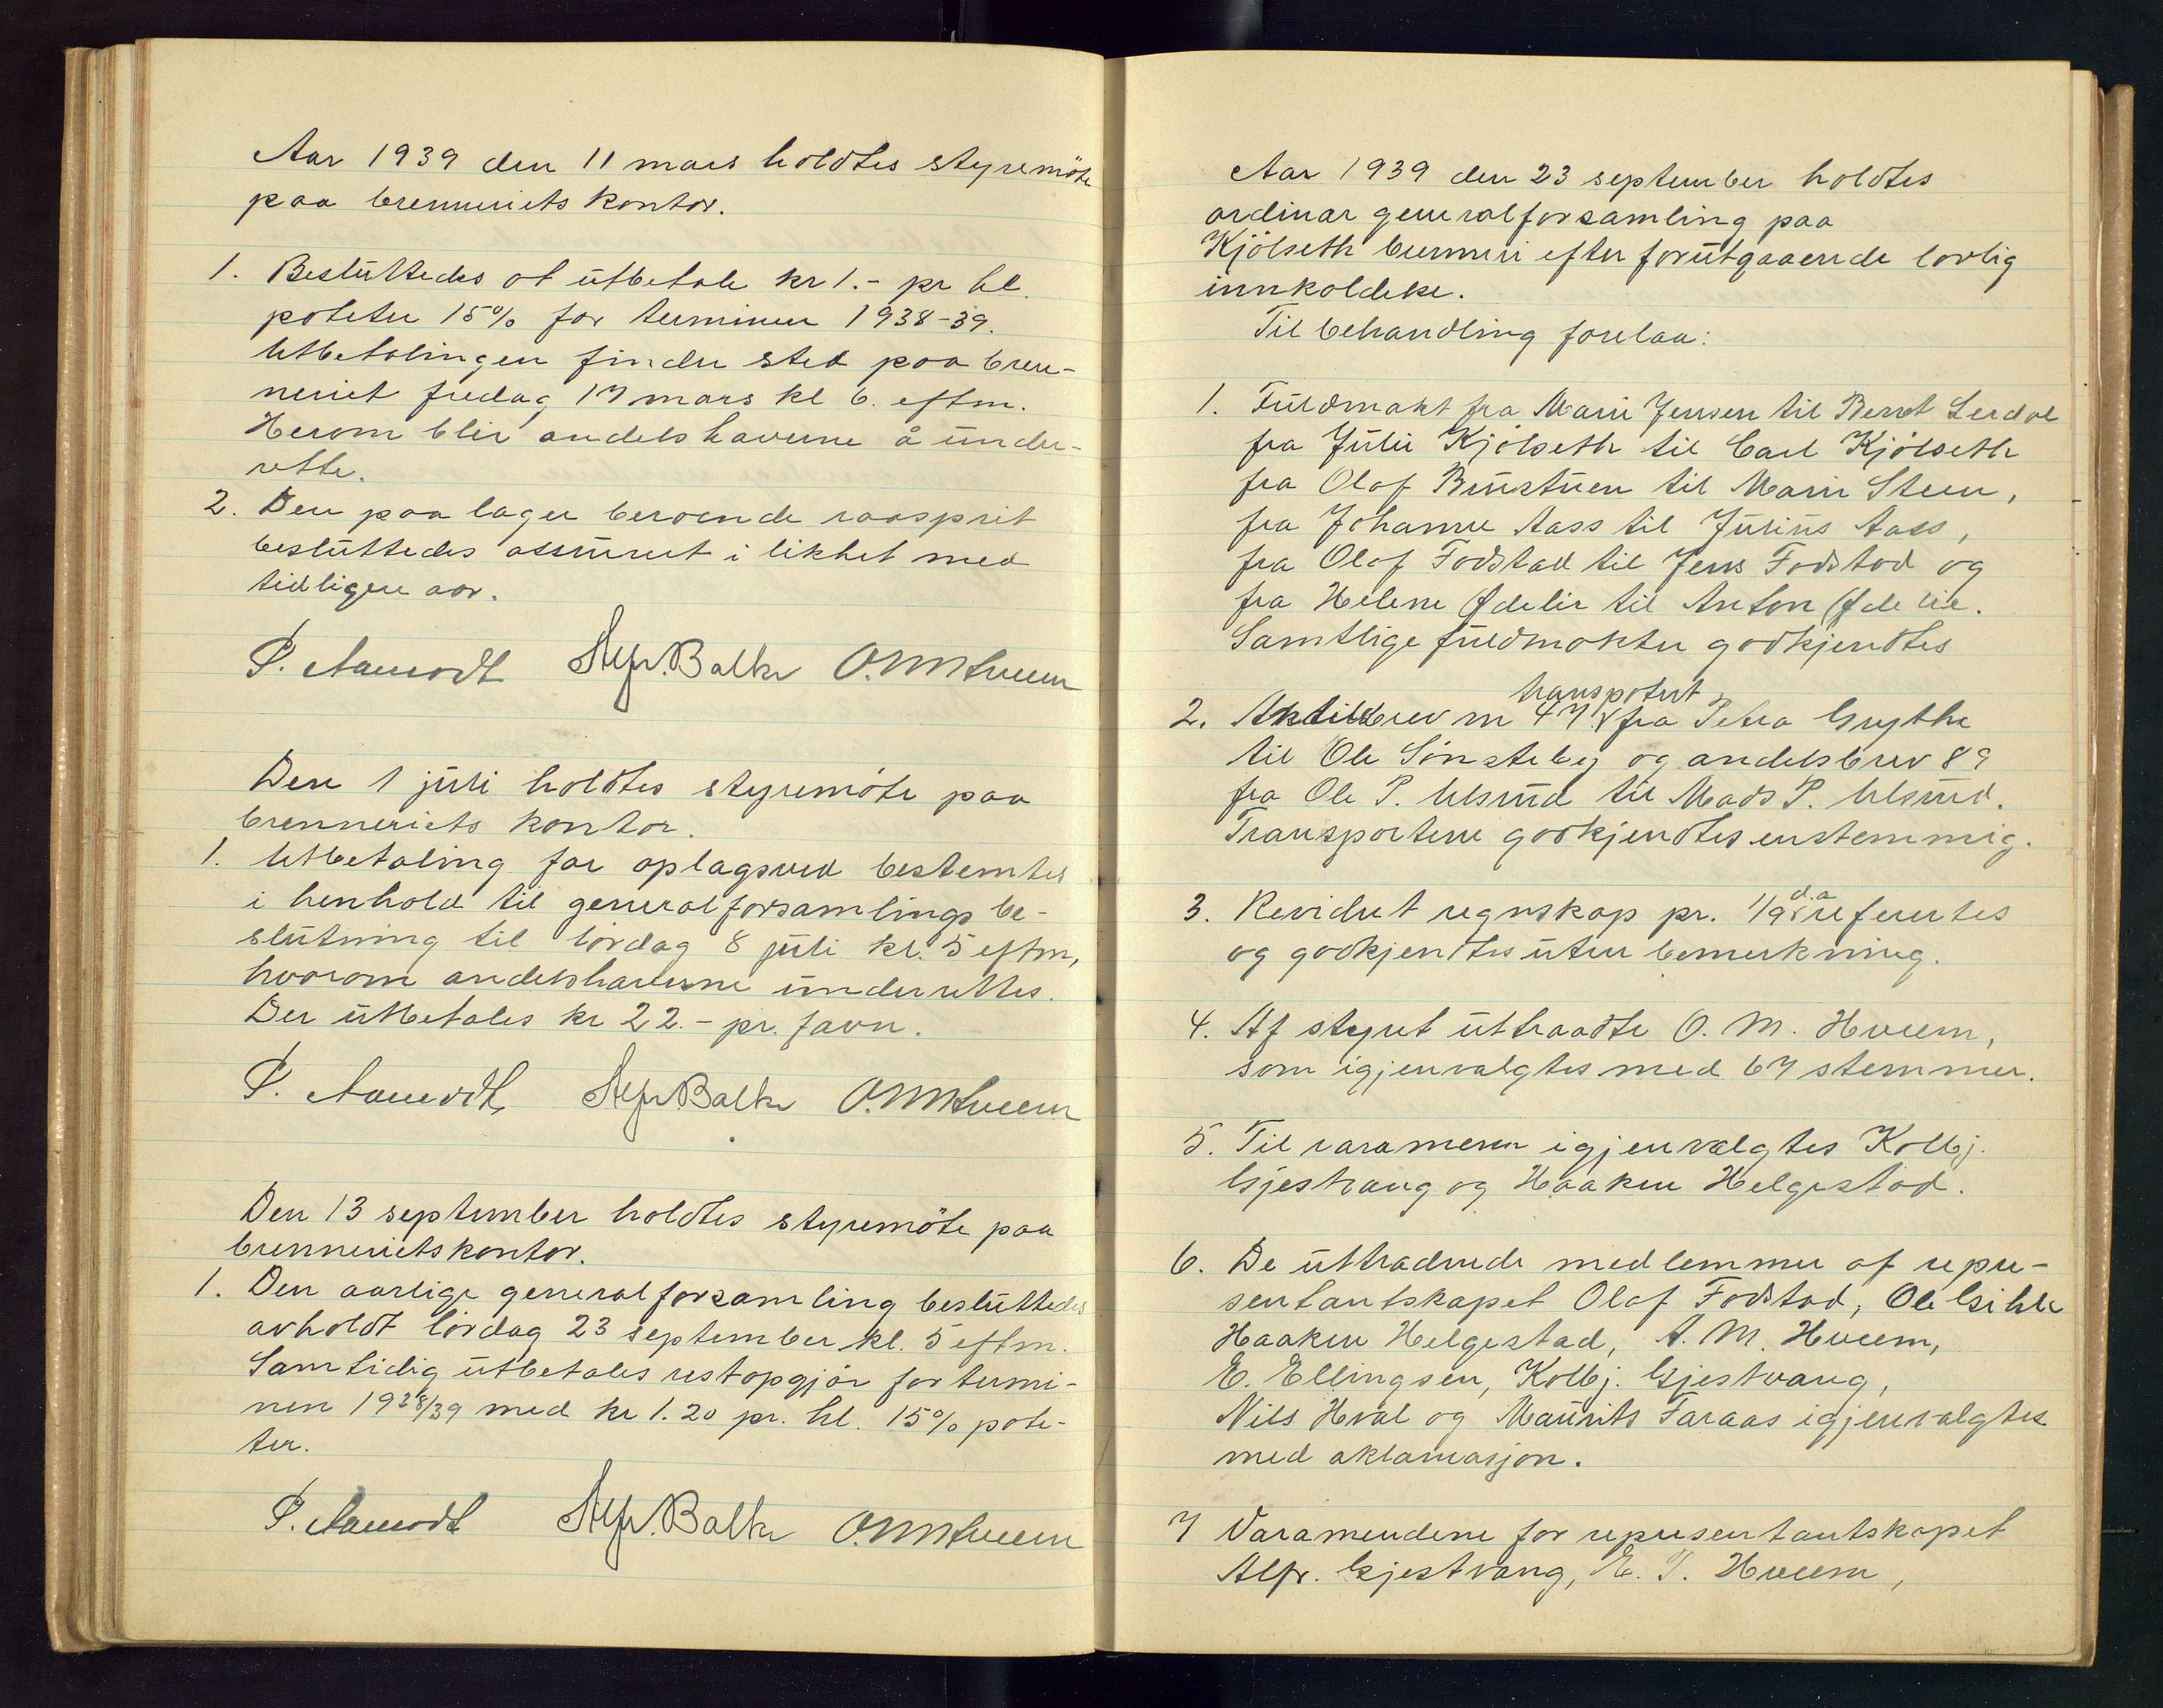 Aar 1939 den 11 mars holdtes styremöte
paa brenneriets kontor.
1. Besluttedes at utbetale kr 1.- pr hl.
poteter 15% for terminen 1938-39.
Utbetalingen finder sted paa bren-
neriet fredag 17 mars kl 6. eftm.
Herom blir andelshaverne å under-
rette.
2. Den paa lager beroende raasprit
besluttedes assurert i likhet med
tidligere aar.
P. Aamodt Alfr. Balke O. M. Hveem
Den 1 juli holdtes styremöte paa
brenneriets kontor.
1. Utbetaling for oplagsved bestemtes
i henhold til generalforsamlings be-
slutning til lördag 8 juli kl. 5 eftm,
hvorom andelshaverne underrettes.
Der utbetales kr 22.- pr. favn.
P. Aamodt Alfr. Balke O. M. Hveem
Den 13 september holdtes styremöte paa
brenneriets kontor.
1. Den aarlige generalforsamling besluttedes
avholdt lördag 23 september kl. 5 eftm.
Samtidig utbetales restopgjör for termi-
nen 1938/39 med kr 1.20 pr. hl. 15% pote-
ter.
P. Aamodt Alfr. Balke O. M. Hveem
Aar 1939 den 23 september holdtes
ordinær generalforsamling paa
Kjölseth brenneri efter forutgaaende lovlig
innkoldelse.
Til behandling forelaa:
1. Fuldmakt fra Marie Jensen til Bernt Lerdal
fra Julie Kjölseth til Carl Kjölseth
fra Olaf Bustuen til Marie Steen,
fra Johanne Aass til Julius Aass,
fra Olaf Fodstad til Jens Fodstad og
fra Helene Ødelie til Anton Ødelie.
Samtlige fuldmakter godkjendtes
transportert
2. brev nr 47 fra Petra Grythe
til Ole Sönsteby og andelsbrev 89
fra Ole P. Ulsrud til Mads P. Ulsrud.
Transportene godkjendtes enstemmig.
3. Revidert regnskap pr. 1/9 d.a referertes
og godkjentes uten bemerkning.
4. Af styret uttraadte O. M. Hveem,
som igjenvalgtes med 67 stemmer.
5. Til varamenn igjenvalgtes Kolbj.
Gjestvang og Haaken Helgestad.
6. De uttrædende medlemmer af repre-
sentantskapet Olaf Fodstad, Ole Gihle
Haaken Helgestad, A. M. Hveem,
E. Ellingsen, Kolbj. Gjestvang,
Nils Hval og Maurits Faraas igjenvalgtes
med aklamasjon.
7 Varamendene for representantskapet
Alfr. Gjestvang, E. T. Hveem,